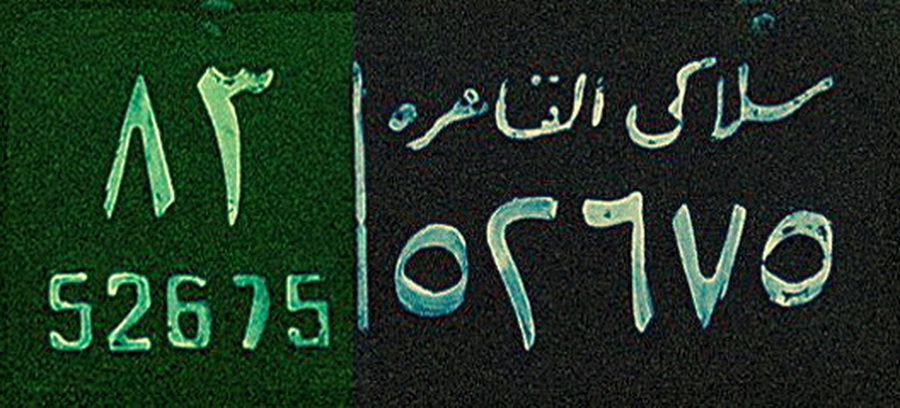 ملاكى القاهره
٥٢٦٧٥
٨٣
52675